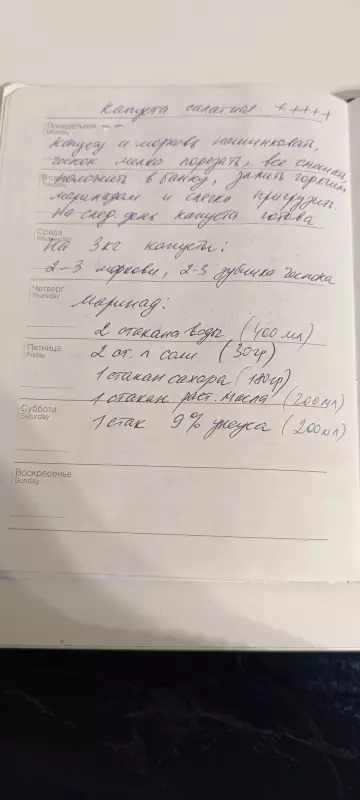 Капуста салатная +++++
Понедельник
Monday
Капусту и морковь нашинковать,
чеснок мелко порезать, все смешать,
Вторник
Tuesday
положить в банку, залить горячим
маринадом и слегка пригрузить.
На след. день капуста готова
Среда
Wednesday
На 3 кг капусты:
2-3 моркови, 2-3 зубчика чеснока
Четверг
Thursday
Маринад:
2 стакана воды (400 мл)
Пятница
Friday
2 ст. л соли (30гр)
1 стакан сахара (180гр)
1 стакан раст. масла (200мл)
Суббота
Saturday
1 стак 9% уксуса (200мл)
Воскресенье
Sunday